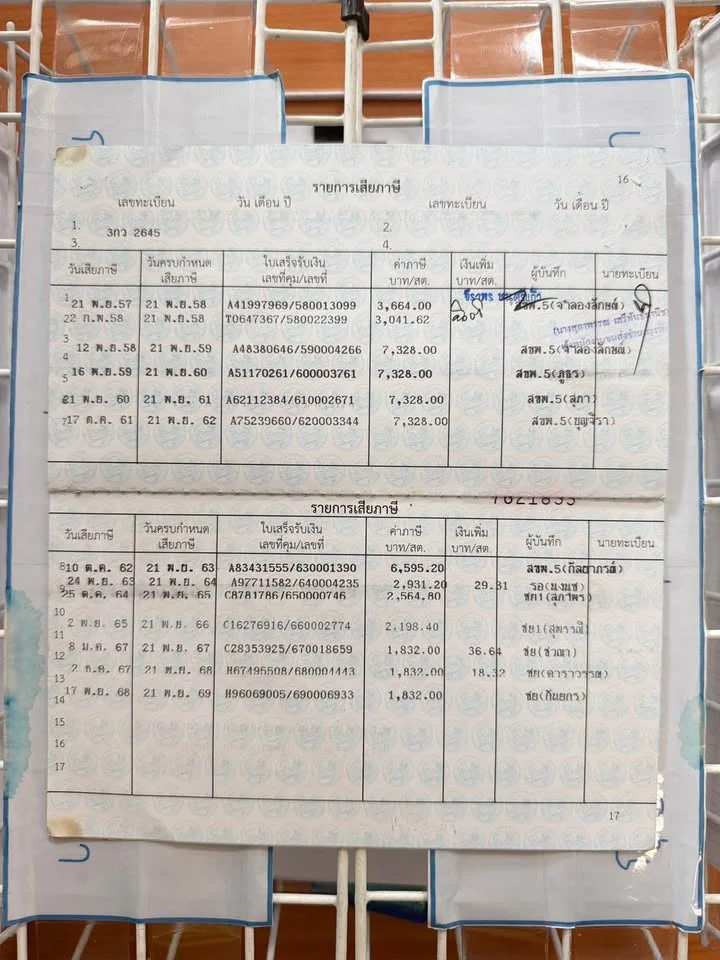 16
รายการเสียภาษี
เลขทะเบียน วัน เดือน ปี เลขทะเบียน วัน เดือน ปี
1. 2.
3กว 2645
3. 4.
วันเสียภาษี วันครบกำหนดเสียภาษี ใบเสร็จรับเงิน เลขที่คุม/เลขที่ ค่าภาษี บาท/สต. เงินเพิ่ม บาท/สต. ผู้บันทึก นายทะเบียน
1 21 พ.ย.57 21 พ.ย.58 A41997969/580013099 3,664.00 สขพ.5(จำลองลักษณ์)
22 ก.พ.58 21 พ.ย.58 T0647367/580022399 3,041.62
3
12 พ.ย.58 21 พ.ย.59 A48380646/590004266 7,328.00 สขพ.5(จำลองลักษณ์)
4
16 พ.ย.59 21 พ.ย.60 A51170261/600003761 7,328.00 สขพ.5(ภูธร)
5
21 พ.ย. 60 21 พ.ย. 61 A62112384/610002671 7,328.00 สขพ.5(สุภา)
7 17 ต.ค. 61 21 พ.ย. 62 A75239660/620003344 7,328.00 สขพ.5(บุญจิรา)
รายการเสียภาษี
วันเสียภาษี วันครบกำหนดเสียภาษี ใบเสร็จรับเงิน เลขที่คุม/เลขที่ ค่าภาษี บาท/สต. เงินเพิ่ม บาท/สต. ผู้บันทึก นายทะเบียน
8 10 ต.ค. 62 21 พ.ย. 63 A83431555/630001390 6,595.20 สขพ.5(กัลยาภรณ์)
24 พ.ย. 63 21 พ.ย. 64 A97711582/640004235 2,931.20 29.31
9
25 ต.ค. 64 21 พ.ย. 65 C8781786/650000746 2,564.80 ชย1(สุภาพร)
10
2 พ.ย. 65 21 พ.ย. 66 C16276916/660002774 2,198.40 ชย1(สุพรรณี)
11
8 ม.ค. 67 21 พ.ย. 67 C28353925/670018659 1,832.00 36.64 ชย(ชวณา)
12
2 ม.ค. 67 21 พ.ย. 68 H67495508/680004443 1,832.00 18.32 ชย(ดาราวรรณ)
13
17 พ.ย. 68 21 พ.ย. 69 H96069005/690006933 1,832.00 ชย(กันยกร)
14
15
16
17
17